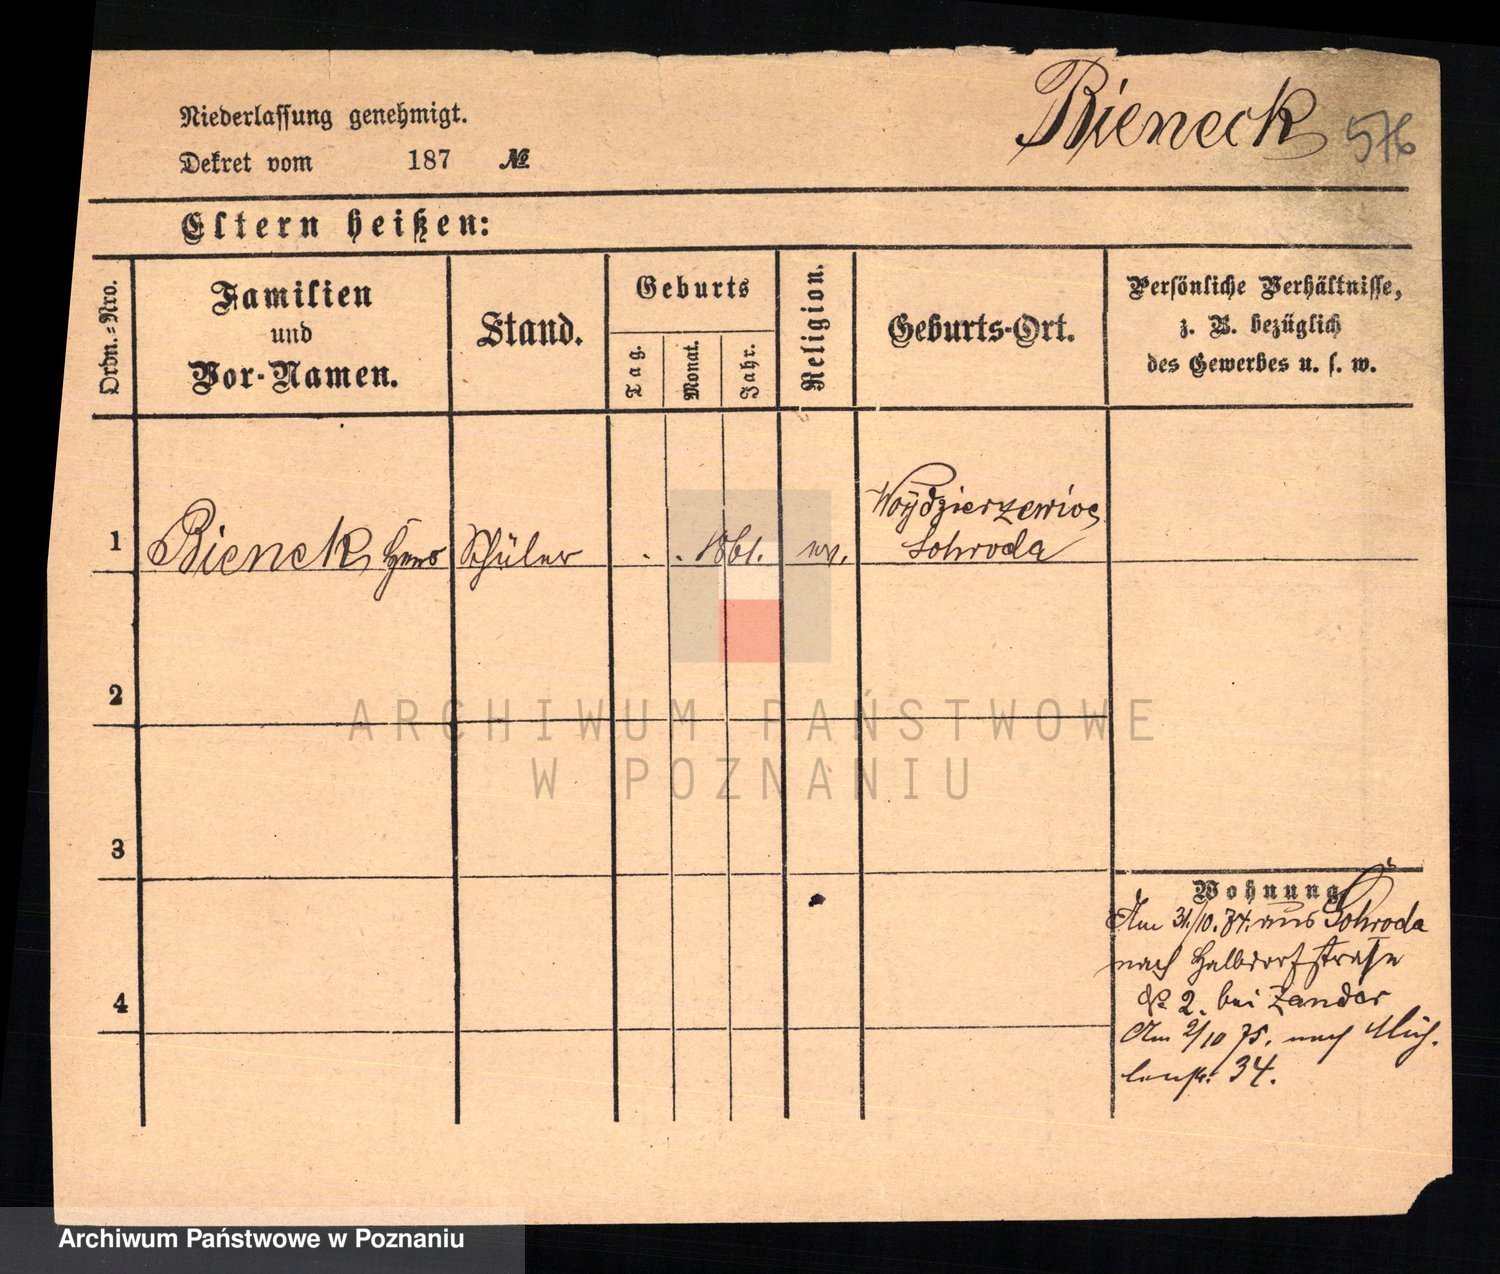 Bieneck 576
Niederlassung genehmigt.
Dekret vom 187 №
Eltern heißen:
Ordn.-Nro.
Familien
und
Vor-Namen.
Stand.
Geburts
Tag.
Monat.
Jahr.
Religion.
Geburts-Ort.
Persönliche Verhältnisse,
z. B. bezüglich
des Gewerbes u. s. w.
1 Bieneck, Hans Schüler . . 1861. ev.
Schroda
2
3
4
Wohnung
Am 31/10. 74. aus Schroda
nach Halbdorfstraße
№ 2. bei Zander
Am 2/10 75. nach Müh-
lenstr. 34.
ARCHIWUM PAŃSTWOWE
W POZNANIU
Archiwum Państwowe w Poznaniu